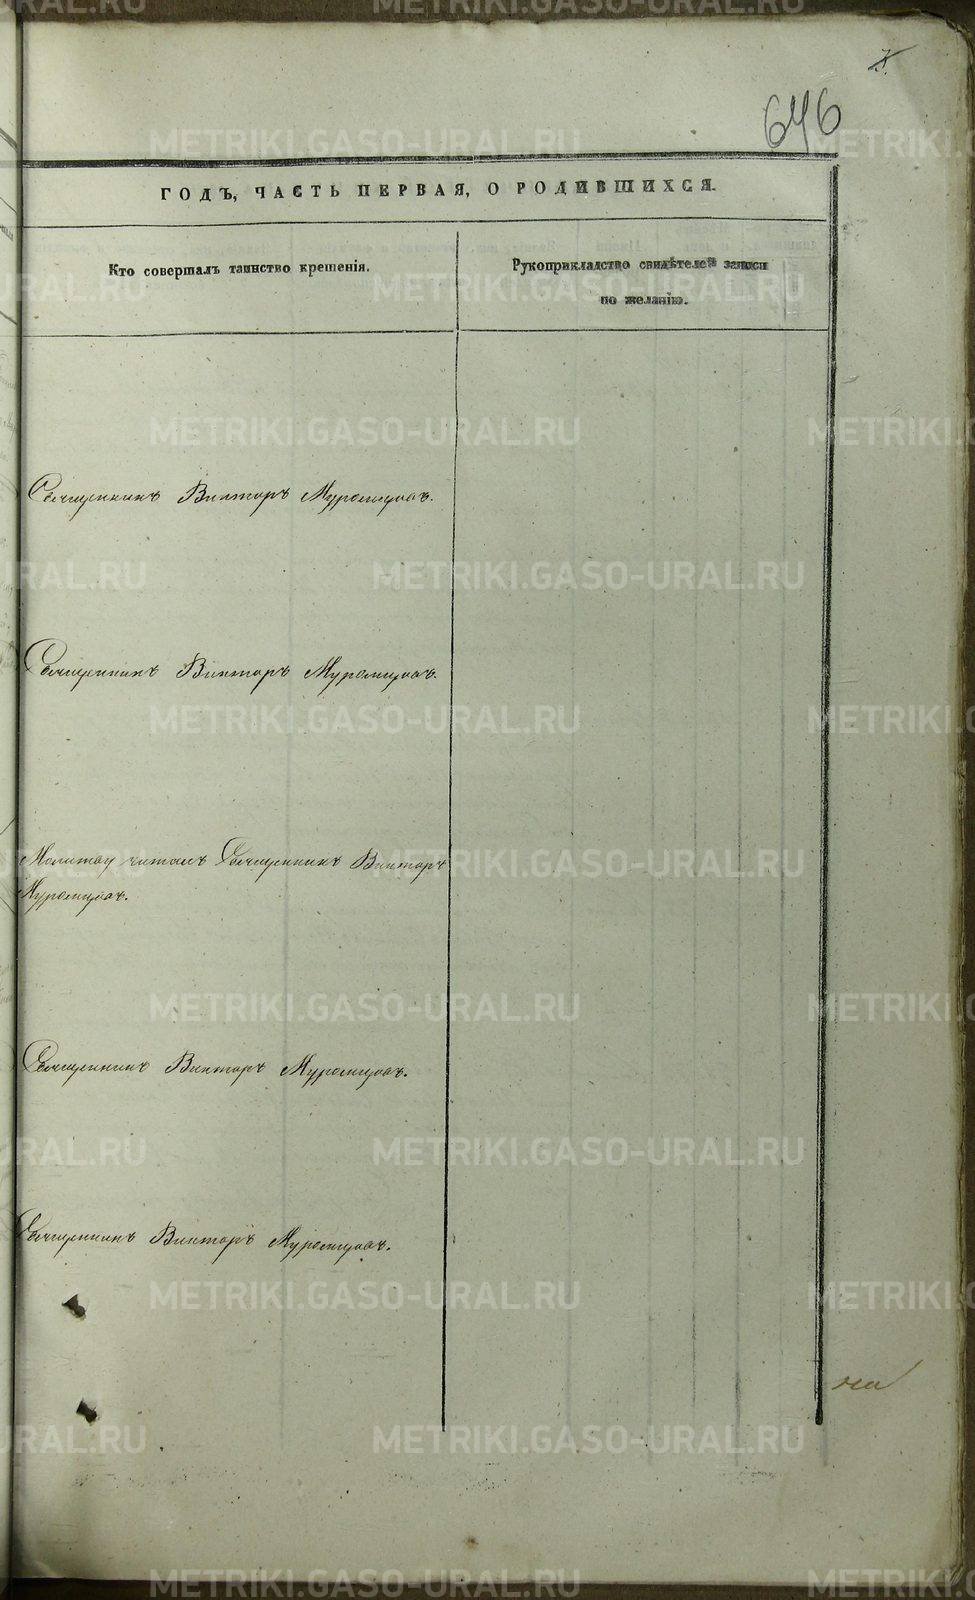 646
ГОДЪ, ЧАСТЬ ПЕРВАЯ, О РОДИВШИХСЯ.
Кто совершалъ таинство крещенія.
Рукоприкладство свидѣтелей записи
по желанію.
Священникъ Викторъ Муромцовъ.
Священникъ Викторъ Муромцовъ.
Молитву читалъ Священникъ Викторъ
Муромцовъ.
Священникъ Викторъ Муромцовъ.
Священникъ Викторъ Муромцовъ.
METRIKI.GASO-URAL.RU